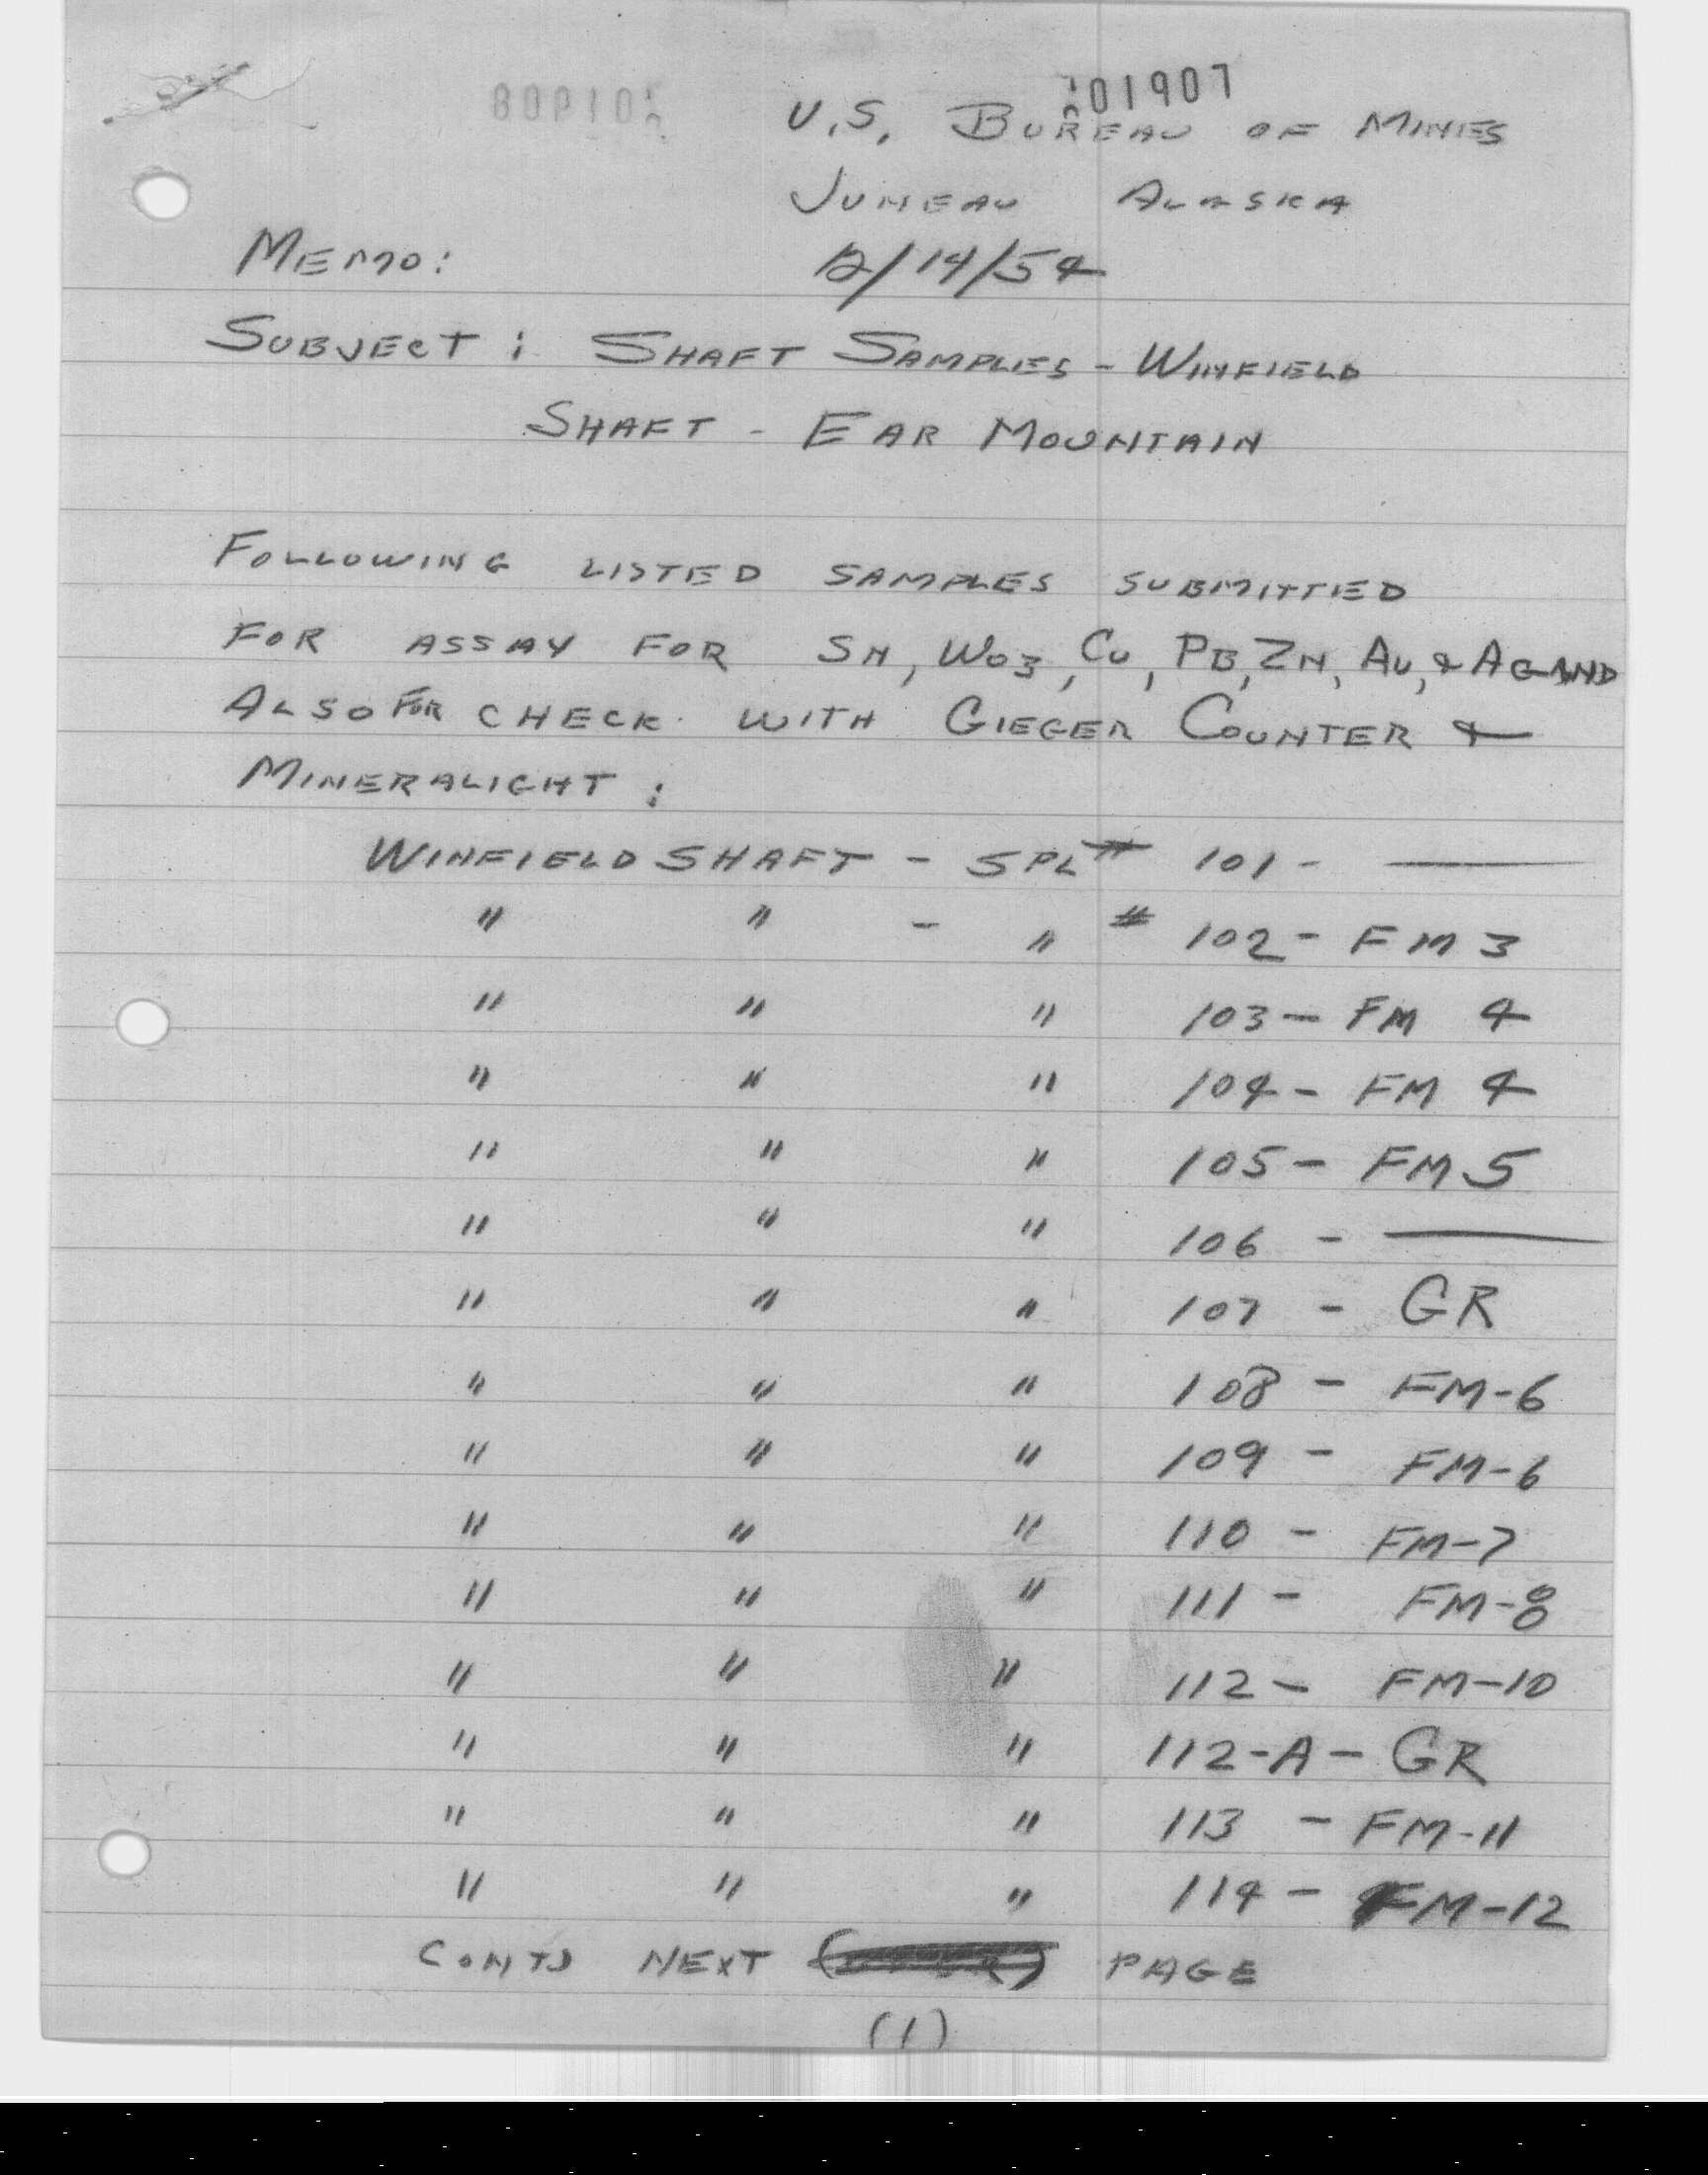 201907
U.S. BUREAU OF MINES
JUNEAU ALASKA
MEMO: 12/14/54
SUBJECT: SHAFT SAMPLES - WINFIELD
SHAFT - EAR MOUNTAIN
FOLLOWING LISTED SAMPLES SUBMITTED
FOR ASSAY FOR SN, WO3, CU, PB, ZN, AU, & AG AND
ALSO FOR CHECK WITH GIEGER COUNTER &
MINERALIGHT:
WINFIELD SHAFT - SPL # 101 - —
" " - " # 102 - FM 3
" " " 103 - FM 4
" " " 104 - FM 4
" " " 105 - FM 5
" " " 106 - —
" " " 107 - GR
" " " 108 - FM-6
" " " 109 - FM-6
" " " 110 - FM-7
" " " 111 - FM-8
" " " 112 - FM-10
" " " 112-A - GR
" " " 113 - FM-11
" " " 114 - FM-12
CONTD NEXT PAGE
(1)